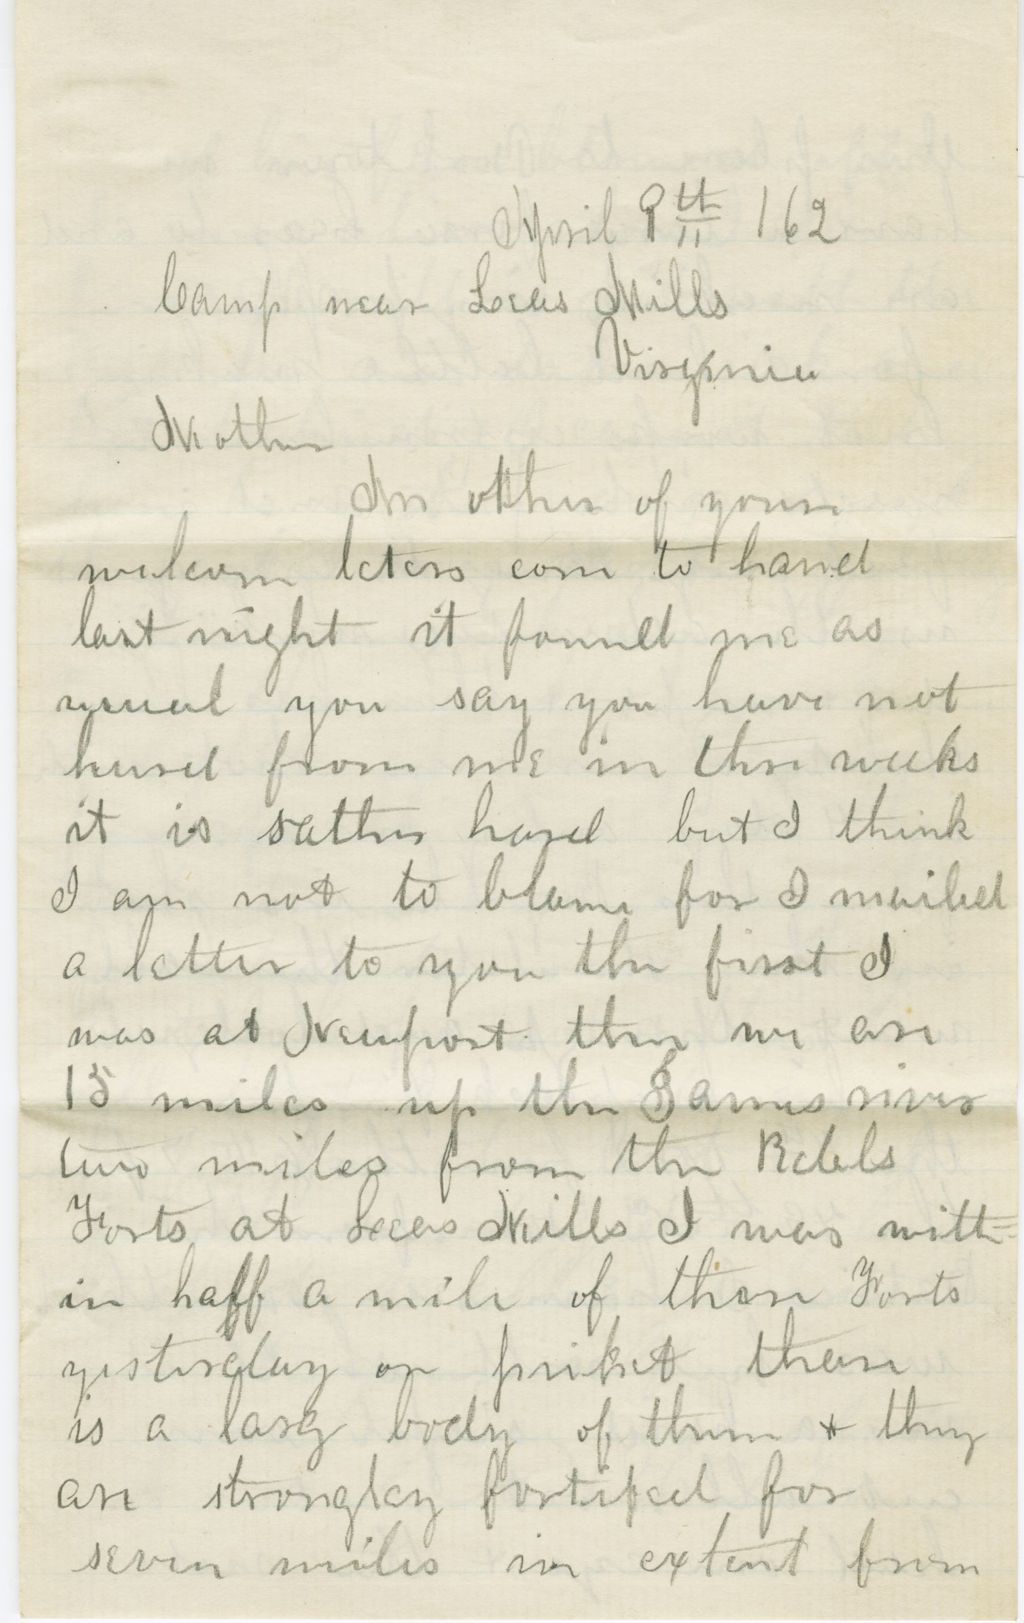 April 9th 162
Camp near Lees Mills
Virginia
Mother
An other of youre
welcom leters com to hand
last night it found me as
usual you say you have not
hurd from me in thre weeks
it is rather hard but I think
I am not to blame for I mailed
a letter to you the first I
was at Newport then we are
15 miles up the James river
two miles from the Rebels
Forts at Lees Mills I was with=
in haff a mile of thare Forts
yesterday on picket thare
is a larg body of them & they
are strongley fortifed for
seven miles in extent from